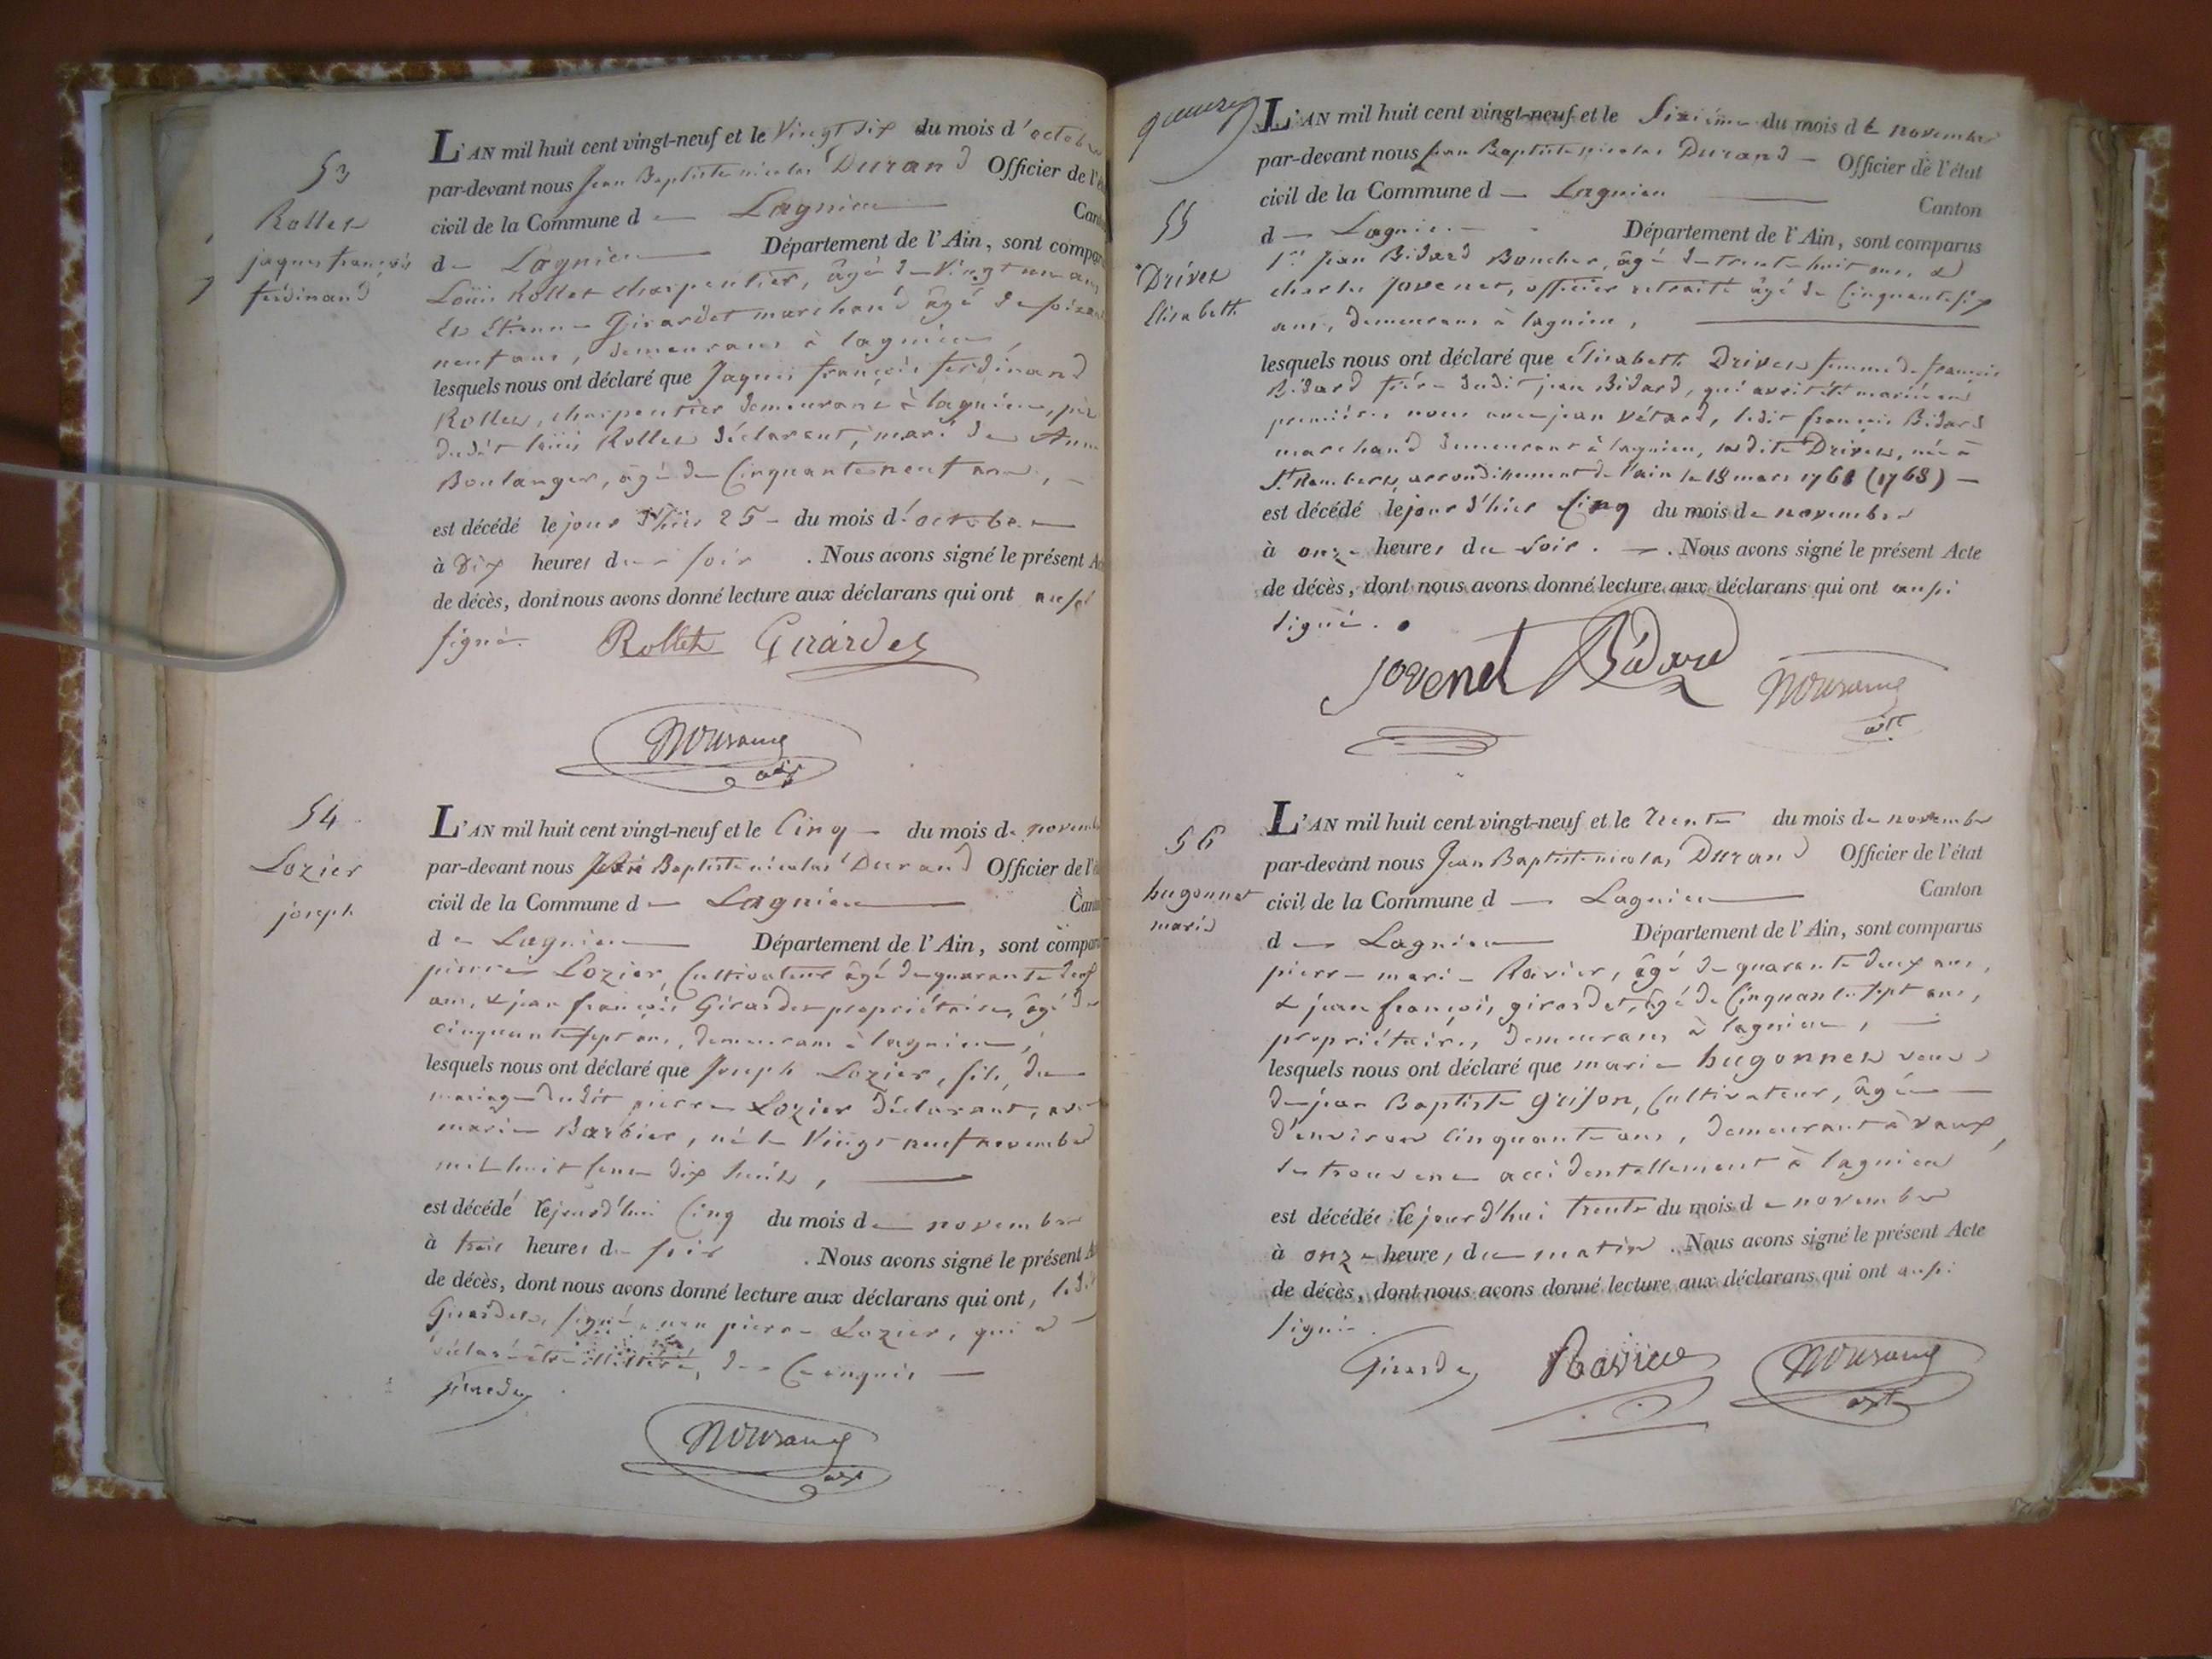 53
Rollet
jaques françois
ferdinand
L'AN mil huit cent vingt-neuf et le Vingt six du mois d'octobre
par-devant nous Jean Baptiste nicolas Durand Officier de l'é
civil de la Commune de Lagnieu Canto
de Lagnieu Département de l'Ain, sont compar
Loüis Rollet charpentier, âgé de Vingt un ans
Et Etienne Girardet marchand âgé de soixan
neuf ans, demeurans à lagnieu,
lesquels nous ont déclaré que Jaques françois ferdinand
Rollet, charpentier demeurant à lagnieu, père
dudit loüis Rollet déclarant, mari de Anne
Boulanger, âgé de Cinquante neuf ans, —
est décédé le jour d'hier 25 - du mois d'octobre
à dix heures du soir . Nous avons signé le présent Ac
de décès, dont nous avons donné lecture aux déclarans qui ont aussi
signé. Rollet Girardet
Durand
adjt
54
Lozier
joseph
L'AN mil huit cent vingt-neuf et le Cinq — du mois de novemb
par-devant nous Jean Baptiste nicolas Durand Officier de l'é
civil de la Commune de Lagnieu Canto
de Lagnieu Département de l'Ain, sont compar
pierre Lozier, Cultivateur âgé de quarante deux
ans, & jean françois Girardet propriétaire, âgé de
cinquante sept ans, demeurans à lagnieu,
lesquels nous ont déclaré que Joseph Lozier, fils, du
mariage dudit pierre Lozier déclarant, avec
marie Barbier, né le Vingt neuf novembre
mil huit Cent dix huit, —
est décédé le jourd'hui Cinq du mois de novembre
à trois heures du soir . Nous avons signé le présent A
de décès, dont nous avons donné lecture aux déclarans qui ont, ledit
Girardet, signé, non pierre Lozier, qui a
déclaré être illitéré, de Ce enquis —
Girardet
Durand
adjt
L'AN mil huit cent vingt-neuf et le Sixième du mois de novembre
par-devant nous jean Baptiste nicolas Durand — Officier de l'état
civil de la Commune de Lagnieu Canton
de Lagnieu Département de l'Ain, sont comparus
55
Drivet
Elisabeth
Jean Bidard Boucher, âgé de trente huit ans, &
charles Jovenet, officier retraité âgé de Cinquante six
ans, demeurans à lagnieu,
lesquels nous ont déclaré que Elisabeth Drivet femme de françois
Bidard frère dudit jean Bidard, qui avait été mariée en
premières noces avec jean Vétard, ledit françois Bidard
marchand demeurant à lagnieu, ladite Drivet, née à
St Rambert, arrondissement de l'ain le 18 mars 1768 (1768) —
est décédé le jour d'hier Cinq du mois de novembre
à onze heures du soir. — . Nous avons signé le présent Acte
de décès, dont nous avons donné lecture aux déclarans qui ont aussi
signé.
Jovenet Bidard Durand
adjt
56
hugonnet
marie
L'AN mil huit cent vingt-neuf et le Trente du mois de novembre
par-devant nous Jean Baptiste nicolas Durand Officier de l'état
civil de la Commune de Lagnieu Canton
de Lagnieu Département de l'Ain, sont comparus
pierre marie Ravier, âgé de quarante deux ans,
& jean françois girardet, âgé de Cinquante sept ans,
propriétaires, demeurans à lagnieu, —
lesquels nous ont déclaré que marie hugonnet veuve
de jean Baptiste grison, Cultivateur, âgée
d'environ Cinquante ans, demeurant à vaux,
se trouvant accidentellement à lagnieu
est décédée le jourd'hui trente du mois de novembre
à onze heures du matin . Nous avons signé le présent Acte
de décès, dont nous avons donné lecture aux déclarans qui ont aussi
signé.
Girardet Ravier Durand
adjt